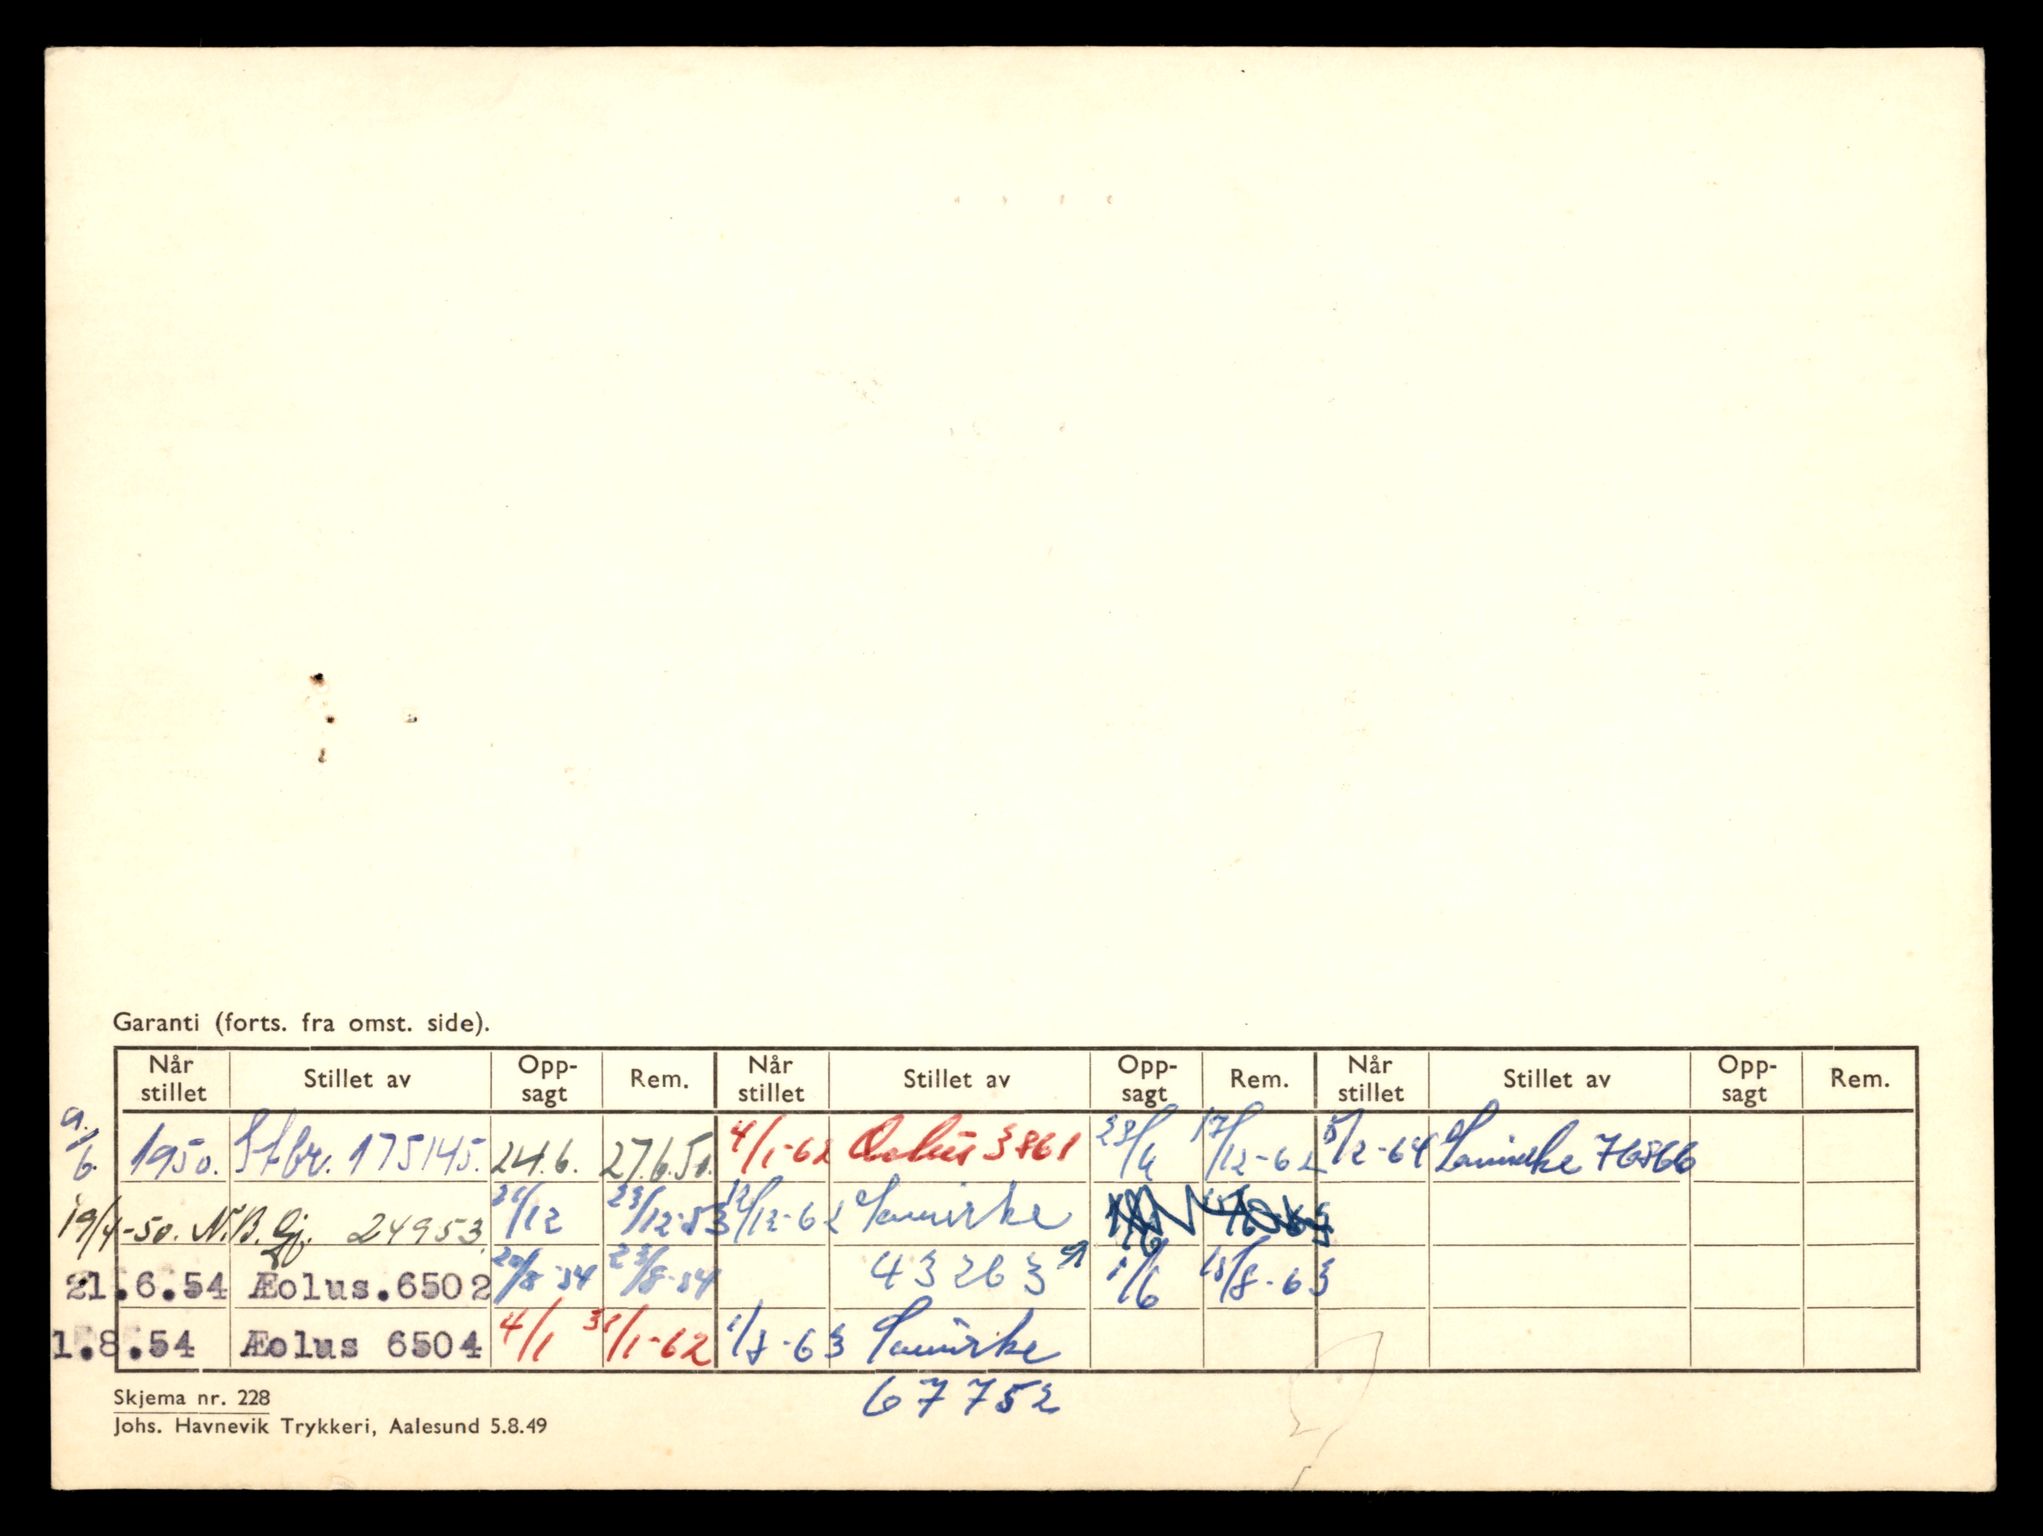 Garanti (forts. fra omst. side).
Når stillet Stillet av Opp-sagt Rem. Når stillet Stillet av Opp-sagt Rem. Når stillet Stillet av Opp-sagt Rem.
9/6. 1950. Stbr. 175145. 24.6. 27.6.50. 4/1-62 Æolus 3861 23/4 17/12-62 15/2-64 Samvirke 76866
19/4-50. N.B.Gj. 24953. 21/12 23/12-53 12/12-62 Samvirke
21.6.54 Æolus.6502 20/8-54 23/8-54 43263 1/6 15/8-63
1.8.54 Æolus 6504 4/1 31/1-62 1/7-63 Samvirke
67752
Skjema nr. 228
Johs. Havnevik Trykkeri, Aalesund 5.8.49